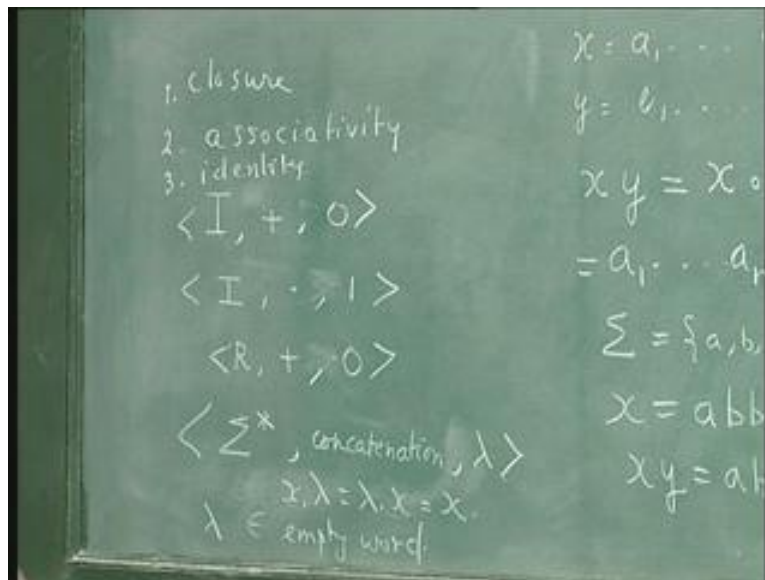 1. closure
2. associativity
3. identity
<I, +, 0>
<I, ·, 1>
<R, +, 0>
<Σ*, concatenation, λ>
x.λ = λ.x = x.
λ ϵ empty word.
x = a₁ . . .
y = b₁ . . .
xy = x o
= a₁ . . . aₙ
Σ = {a, b,
x = abb
xy = ab